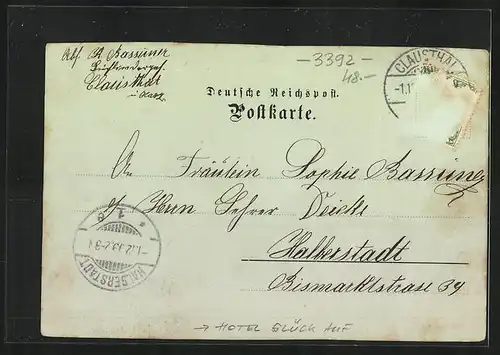 Abs. A Bassüner
Clausthal
i. Harz
— 3392 —
48.—
CLAUSTHAL
Deutsche Reichspost.
Postkarte.
An Fräulein Sophie Bassüner
Herrn Lehrer Deicke
Halberstadt
Bismarkstrasse 39
HALBERSTADT
→ HOTEL GLÜCK AUF